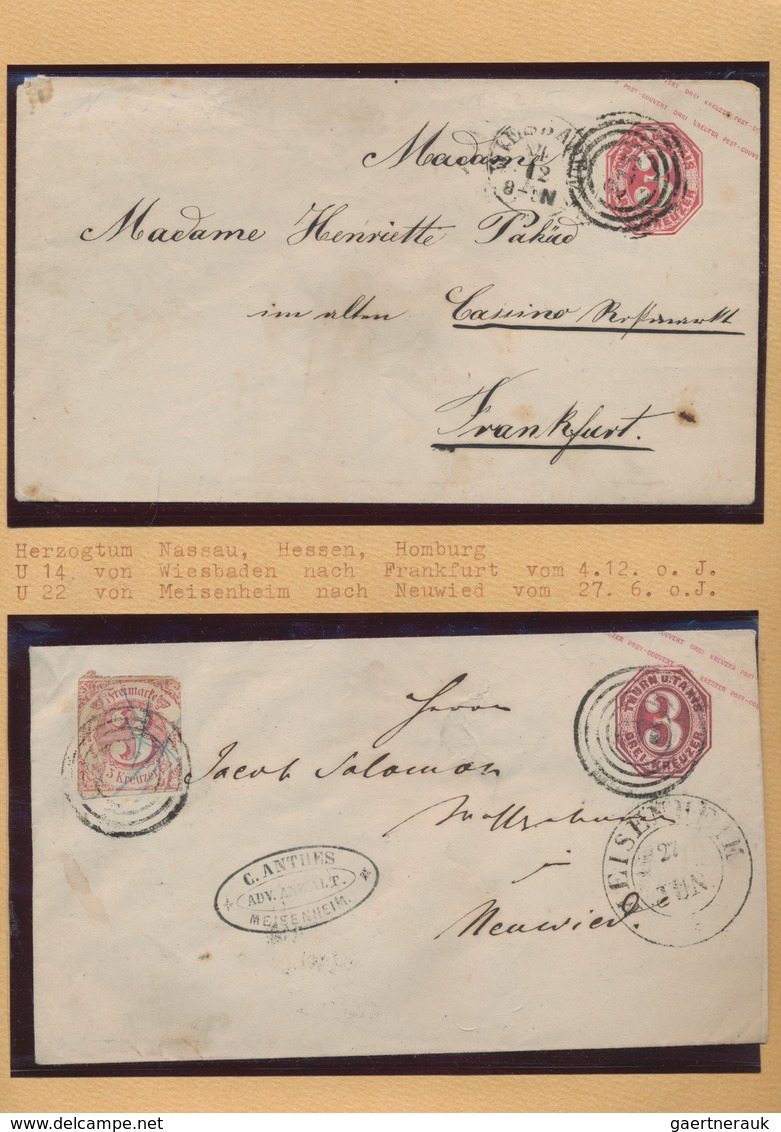 POST-COUVERT DREI KREUZER POST-COUVERT
WIESBA
4
12
THURN U. TAXIS
3
DREI KREUZER
Madame
Madame Henriette Pahud
im alten Cassino Roßmarkt
Frankfurt.
Herzogtum Nassau, Hessen, Homburg
U 14 von Wiesbaden nach Frankfurt vom 4.12. o. J.
U 22 von Meisenheim nach Neuwied vom 27. 6. o.J.
POST-COUVERT DREI KREUZER
Freimarke
3
3 Kreuzer
THURN U. TAXIS
3
DREI KREUZER
Herrn
Jacob Salomon
i
Neuwied.
C. ANTHES
ADV. ANWALT.
MEISENHEIM.
MEISENHEIM
27
JUN
gaertnerauk